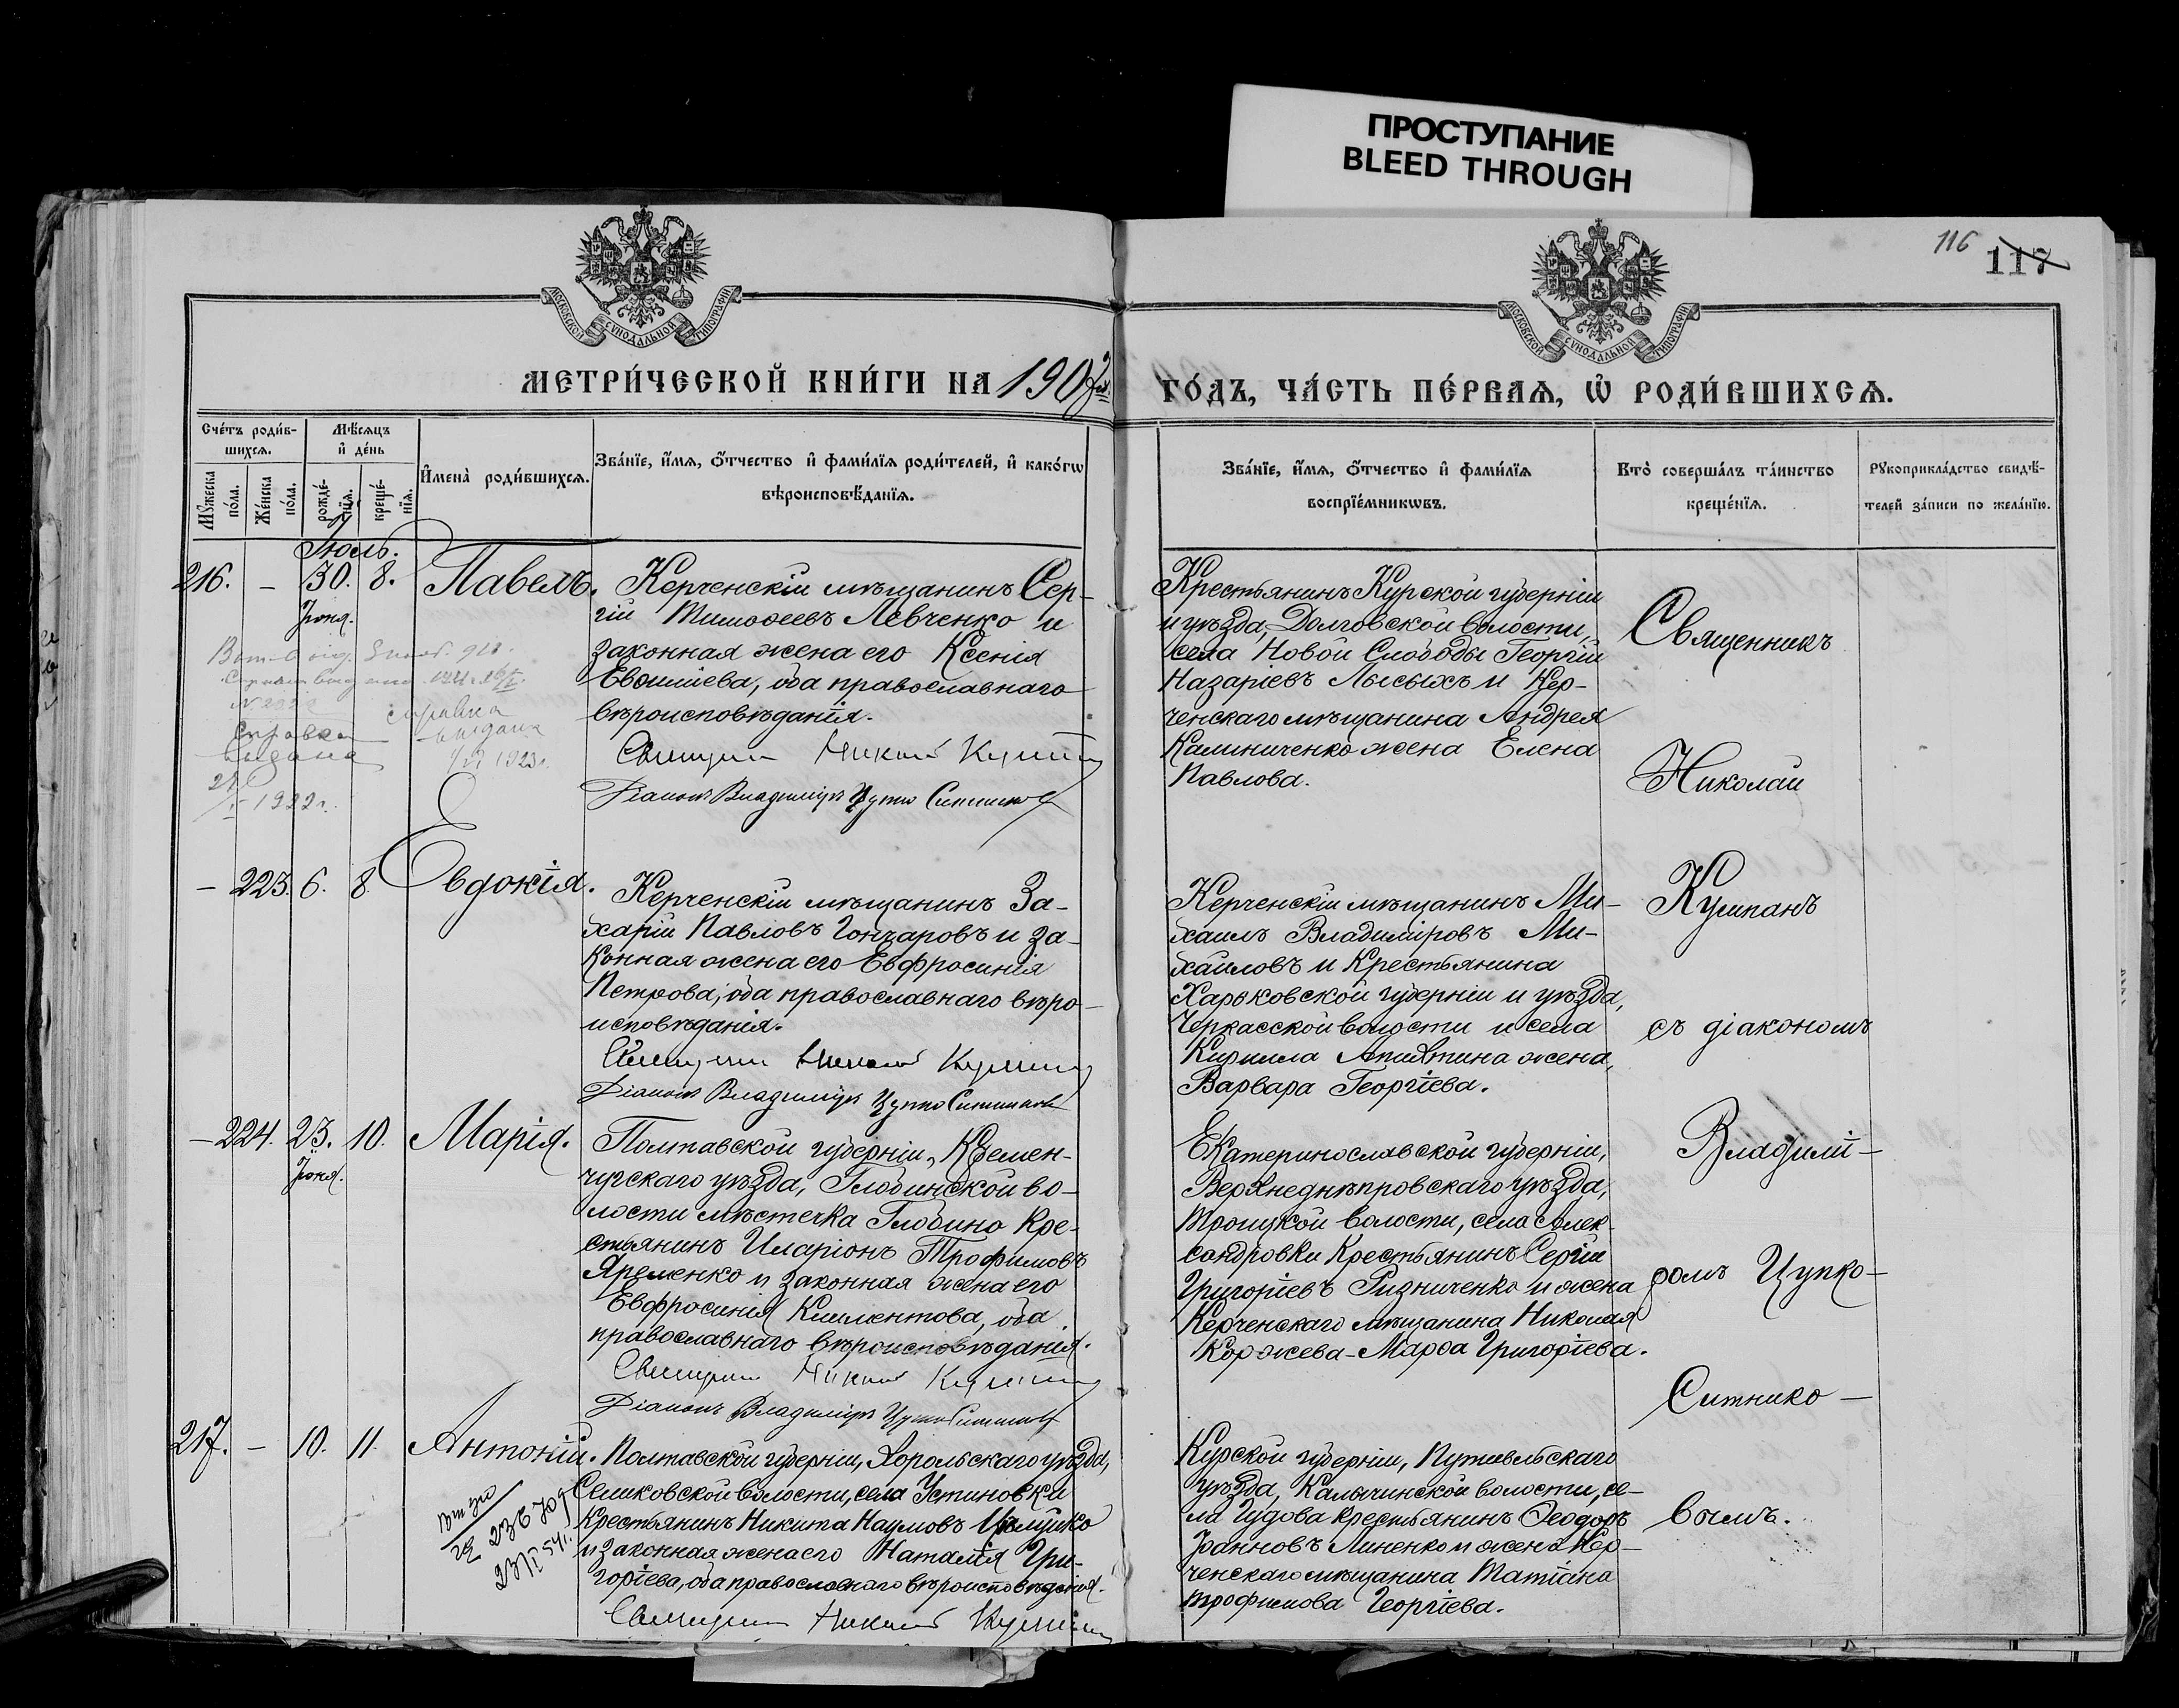 ПРОСТУПАНИЕ
BLEED THROUGH
116 117
МОСКОВСКОЙ СѴНОДАЛЬНОЙ ТИПОГРАФІИ
МОСКОВСКОЙ СѴНОДАЛЬНОЙ ТИПОГРАФІИ
МЕТРИ́ЧЕСКОЙ КНИ́ГИ НА 190
ГО́ДЪ, ЧА́СТЬ ПЕ́РВАѦ, Ѡ҆ РОДИ́ВШИХСѦ.
Сче́тъ роди́в-
шихсѧ.
Мꙋ́жеска по́ла.
Же́нска по́ла.
Мѣ́сѧцъ
и҆ де́нь
рожде́-
нїѧ.
креще́-
нїѧ.
И҆мена̀ роди́вшихсѧ.
Зва́нїе, и҆́мѧ, ѻ҆́тчество и҆ фами́лїѧ роди́телей, и҆ како́гѡ
вѣроисповѣ́данїѧ.
Зва́нїе, и҆́мѧ, ѻ҆́тчество и҆ фами́лїѧ
воспрїе́мникѡвъ.
Кто̀ соверша́лъ та́инство
креще́нїѧ.
Рꙋкоприкла́дство свидѣ́-
телей за́писи по жела́нїю.
Іюль.
216. – 30. 8. Павелъ.
Іюня.
Керченскій мѣщанинъ Сер-
гій Тимоѳеевъ Левченко и
законная жена его Ксенія
Евѳиміева, оба православнаго
вѣроисповѣданія.
Священникъ Николай Кушпанъ
Діаконъ Владиміръ Цупко Ситниковъ
справка
выдана
1923г.
Справка
выдана
1922г.
Крестьянинъ Курской губерніи
и уѣзда, Долговской волости,
села Новой Слободы Георгій
Назаріевъ Лысыхъ и Кер-
ченскаго мѣщанина Андрея
Калиниченко жена Елена
Павлова.
– 223. 6. 8. Евдокія.
Керченскій мѣщанинъ За-
харій Павловъ Гончаровъ и за-
конная жена его Евфросинія
Петрова, оба православнаго вѣро-
исповѣданія.
Священникъ Николай Кушпанъ
Діаконъ Владиміръ Цупко Ситниковъ
Керченскій мѣщанинъ Ми-
хаилъ Владиміровъ Ми-
хайловъ и крестьянина
Харьковской губерніи и уѣзда,
Черкасской волости и села
Кирилла жена,
Варвара Георгіева.
– 224. 23. 10. Марія.
Іюня.
Полтавской губерніи, Кремен-
чугскаго уѣзда, Глобинской во-
лости мѣстечка Глобино кре-
стьянинъ Иларіонъ Трофимовъ
Яременко и законная жена его
Евфросинія Климентова, оба
православнаго вѣроисповѣданія.
Священникъ Николай Кушпанъ
Діаконъ Владиміръ Цупко Ситниковъ
Екатеринославской губерніи,
Верхнеднѣпровскаго уѣзда,
Троицкой волости, села Алек-
сандровки крестьянинъ Сергій
Григоріевъ Ризниченко и жена
Керченскаго мѣщанина Николая
Коржева – Марѳа Григоріева.
217. – 10. 11. Антоній.
Полтавской губерніи, Хорольскаго уѣзда,
Семиковской волости, села Устиновки
крестьянинъ Никита Наумовъ
и законная жена его Наталія Гри-
горіева, оба православнаго вѣроисповѣданія.
Священникъ Николай Кушпанъ
Курской губерніи, Путивльскаго
уѣзда, Калычинской волости, се-
ла Гудова крестьянинъ Ѳеодоръ
Іоанновъ Линенко и жена Кер-
ченскаго мѣщанина Татіана
Трофимова Георгіева.
Священникъ
Николай
Кушпанъ
съ діакономъ
Владимі-
ромъ Цупко-
Ситнико-
вымъ.